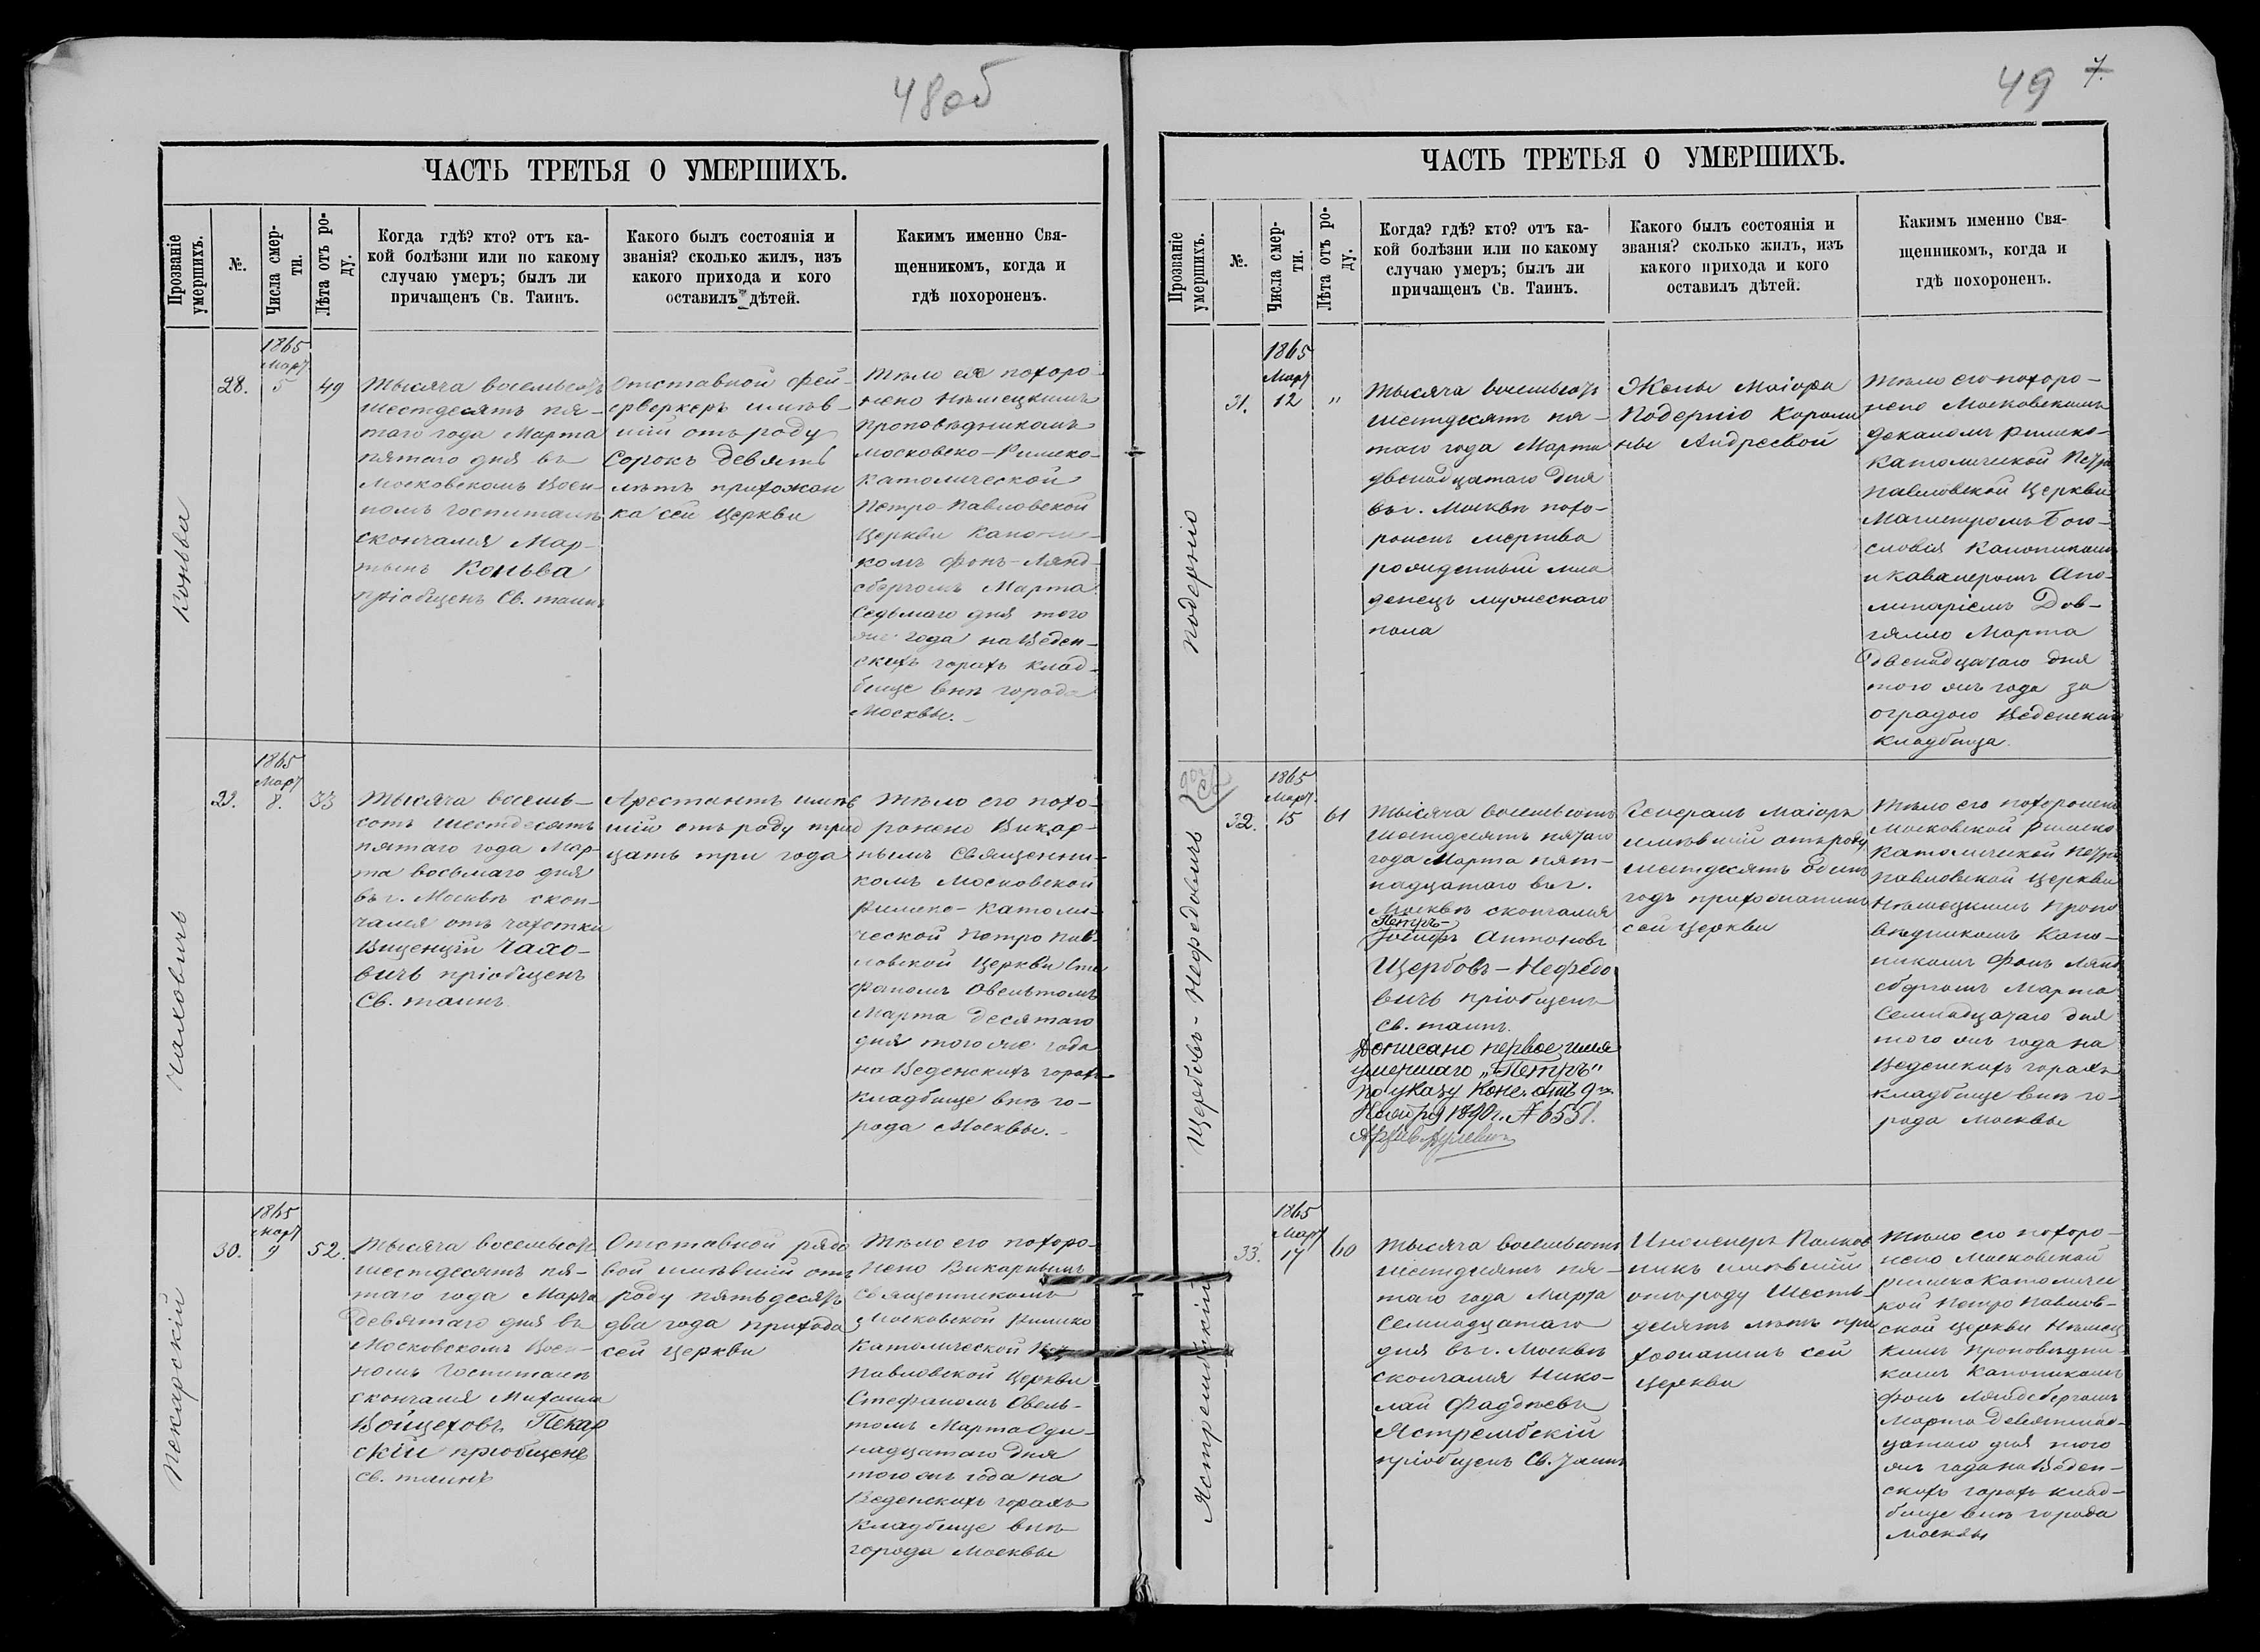 48об
ЧАСТЬ ТРЕТЬЯ О УМЕРШИХЪ.
Прозваніе умершихъ.
№.
Числа смерти.
Лѣта отъ роду.
Когда гдѣ? кто? отъ ка-
кой болѣзни или по какому
случаю умеръ; былъ ли
причащенъ Св. Таинъ.
Какого былъ состоянія и
званія? сколько жилъ, изъ
какого прихода и кого
оставилъ дѣтей.
Какимъ именно Свя-
щенникомъ, когда и
гдѣ похороненъ.
Коньва
28.
1865
Март
5
49
Тысяча восемьсотъ
шестдесятъ пя-
таго года Марта
пятаго дня въ
Московскомъ Воен-
номъ госпиталѣ
скончался Мар-
тынъ Коньва
пріобщенъ Св. таинъ
Отставной Фей-
ерверкеръ имѣв-
шій отъ роду
Сорокъ девять
лѣтъ прихожан
ка сей Церкви
Тѣло ея похоро-
нено Нѣмецкимъ
проповѣдникомъ
Московско-Римско-
Католической
Петро-Павловской
Церкви Канони-
комъ фонъ-Лянд-
сбергомъ Марта
Седьмаго дня того
же года на Веден-
скихъ горахъ клад-
бище внѣ города
Москвы.
Чаховичъ
29.
1865
Март
8.
33
Тысяча восемь-
сотъ шестдесятъ
пятаго года Мар-
та восьмаго дня
въ г. Москвѣ скон-
чался отъ чахотки
Виценцій Чахо-
вичъ пріобщенъ
Св. таинъ
Арестантъ имѣв
шій отъ роду трид
цать три года
Тѣло его похо-
ронено Викар-
нымъ Священни-
комъ Московской
Римско-Католи-
ческой Петро Пав-
ловской Церкви Сте
фаномъ Овельтомъ
Марта десятаго
дня того же года
на Веденскихъ горахъ
кладбище внѣ го-
рода Москвы.
Пекарскій
30.
1865
Март
9
52.
Тысяча восемьсотъ
шестдесятъ пя-
таго года Марта
девятаго дня въ
Московскомъ Воен-
номъ Госпиталѣ
скончался Михаилъ
Войцеховъ Пекар
скій пріобщенъ
св. таинъ
Отставной рядо
вой имѣвшій отъ
роду пятьдесятъ
два года прихода
сей Церкви
Тѣло его похоро-
нено Викарнымъ
Священникомъ
Московской Римско
Католической Пет
Павловской Церкви
Стефаномъ Овель-
томъ Марта Оди-
надцатаго дня
того же года на
Веденскихъ горахъ
кладбище внѣ
города Москвы
49 7.
ЧАСТЬ ТРЕТЬЯ О УМЕРШИХЪ.
Прозваніе умершихъ.
№.
Числа смерти.
Лѣта отъ роду.
Когда? гдѣ? кто? отъ ка-
кой болѣзни или по какому
случаю умеръ; былъ ли
причащенъ Св. Таинъ.
Какого былъ состоянія и
званія? сколько жилъ, изъ
какого прихода и кого
оставилъ дѣтей.
Какимъ именно Свя-
щенникомъ, когда и
гдѣ похороненъ.
Подерніо
31.
1865
Март
12
"
Тысяча восемьсотъ
шестдесятъ пя-
таго года Марта
двенадцатаго дня
въ г. Москвѣ похо-
роненъ мертво
рожденный мла
денецъ мужескаго
пола
Жены Маіора
Подерніо Кароли
ны Андреевой
Тѣло его похоро-
нено Московскимъ
деканомъ Римско-
Католической Петро
Павловской Церкви
Магистромъ Бого-
словія Каноникомъ
и кавалеромъ Апо-
линаріемъ Дов-
гялло Марта
Двенадцатаго дня
того же года за
оградою Веденскаго
кладбища.
Щербовъ-Нефедовичъ
32.
1865
Март
15
61
Тысяча восемьсотъ
шестдесятъ пятаго
года Марта пят-
надцатаго въ г.
Москвѣ скончался
Петръ-
Іосифъ Антоновъ
Щербовъ-Нефедо
вичъ пріобщенъ
Св. таинъ.
Дописано первое имя
умершаго „Петръ"
по указу Конс. отъ 9го
Ноября 1890 г. № 6551.
Генералъ Маіоръ
имѣвшій отъ роду
шестдесятъ одинъ
годъ прихожанинъ
сей Церкви
Тѣло его похоронено
Московской Римско
Католической Петро
Павловской Церкви
Нѣмецкимъ Пропо
вѣдникомъ Кано-
никомъ Фонъ Лянд
сбергомъ Марта
Семнадцатаго дня
того же года на
Веденскихъ горахъ
кладбище внѣ го-
рода Москвы
Ястрембскій
33.
1865
Март
17
60
Тысяча восемьсотъ
шестдесятъ пя-
таго года Марта
Семнадцатаго
дня въ г. Москвѣ
скончался Нико-
лай Фаддѣевъ
Ястрембскій
пріобщенъ Св. Таинъ
Инженеръ Полков
никъ имѣвшій
отъ роду Шесть-
десятъ лѣтъ при
хожанинъ сей
Церкви
Тѣло его похоро-
нено Московской
Римско Католичес
кой Петро Павлов-
ской Церкви Нѣмец
кимъ Проповѣдни
комъ Каноникомъ
фонъ Ляндсбергомъ
Марта Девятнад-
цатаго дня того
же года на Веден-
скихъ горахъ клад-
бище внѣ города
Москвы